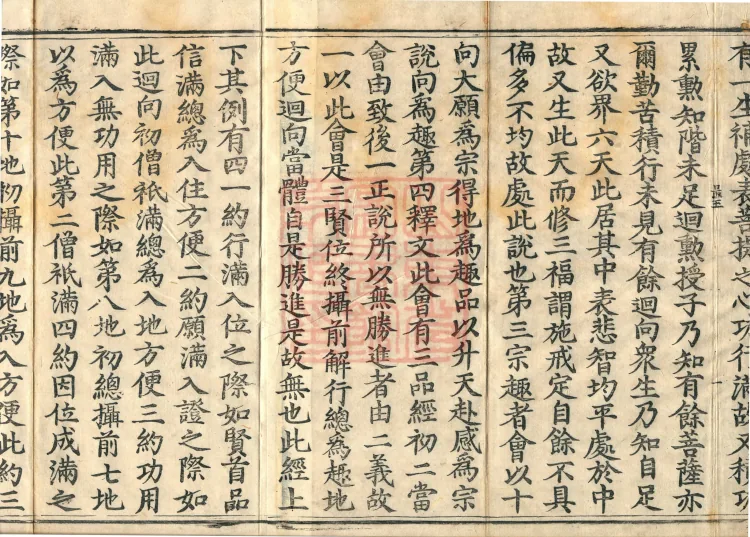 有一生補處表菩提之心功行滿故又積功
最五
累勲知階未足迴勲授子乃知有餘菩薩亦
爾勤苦積行未見有餘迴向衆生乃知自足
又欲界六天此居其中表悲智均平處於中
故又生此天而修三福謂施戒定自餘不具
偏多不均故處此說也第三宗趣者會以十
向大願爲宗得地爲趣品以升天赴感爲宗
說向爲趣第四釋文此會有三品經初二當
會由致後一正說所以無勝進者由二義故
一以此會是三賢位終攝前解行總爲趣地
方便迴向當體自是勝進是故無也此經上
下其例有四一約行滿入位之際如賢首品
信滿總爲入住方便二約願滿入證之際如
此迴向初僧祇滿總爲入地方便三約功用
滿入無功用之際如第八地初總攝前七地
以爲方便此第二僧祇滿四約因位成滿之
際如第十地初攝前九地爲入方便此約三